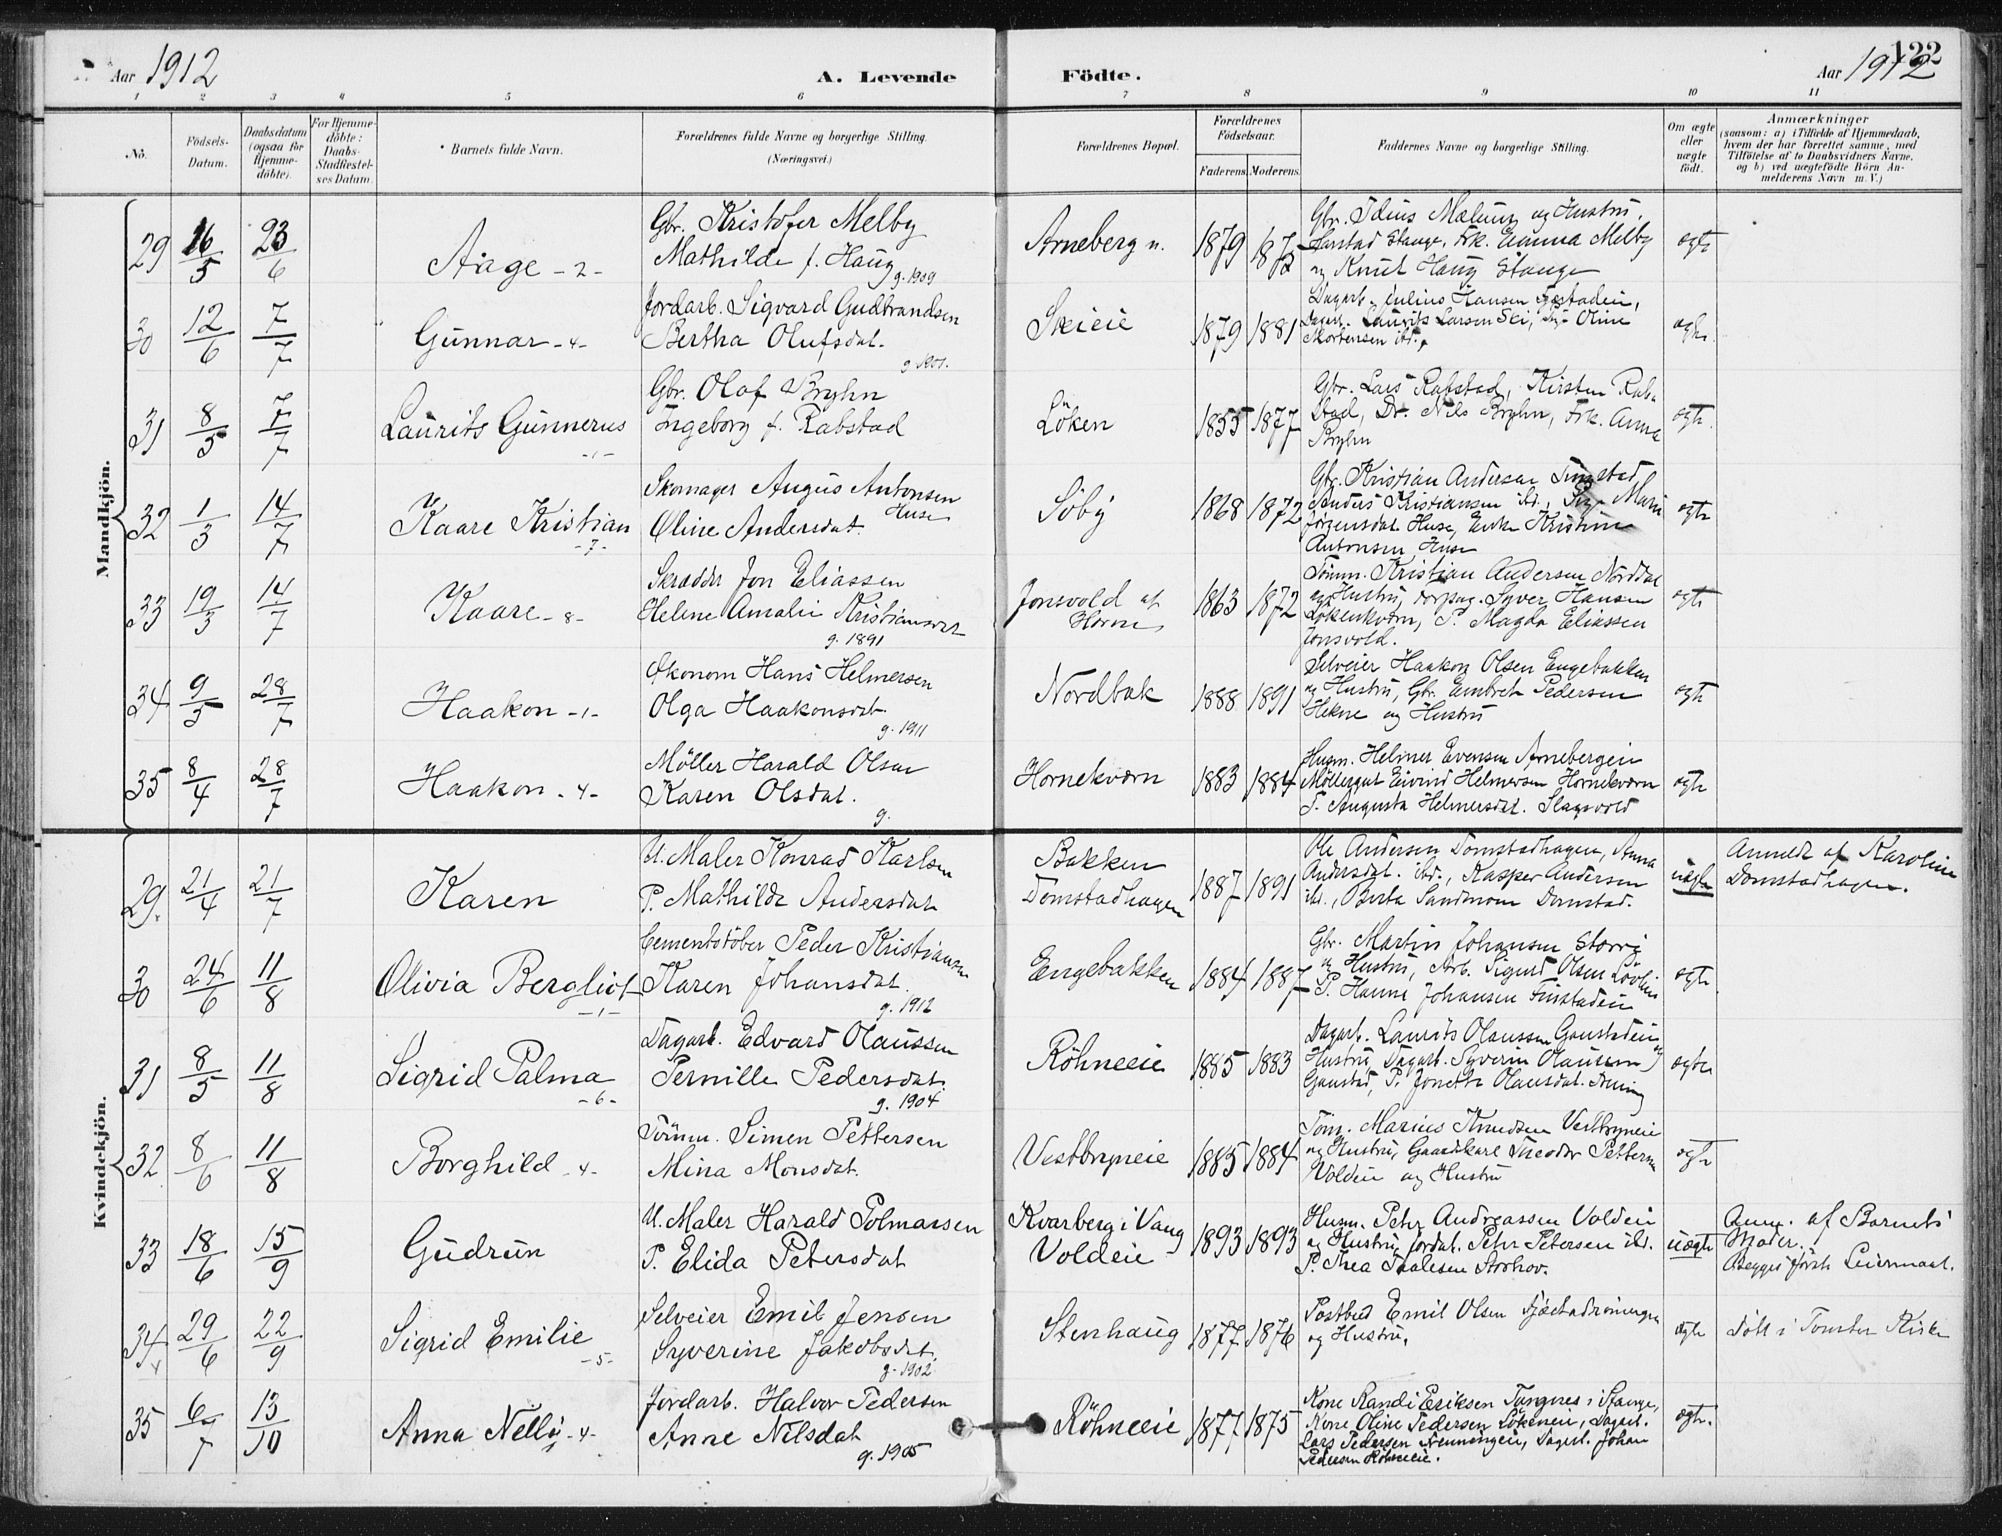 Aar 1912
A. Levende
Födte.
Aar 1912
122
1 2 3 4 5 6 7 8 9 10 11
No.
Födsels-Datum.
Daabsdatum (ogsaa for Hjemmedöbte).
For Hjemmedöbte: Daabs-Stadfæstelses Datum.
Barnets fulde Navn.
Forældrenes fulde Navne og borgerlige Stilling. (Næringsvei.)
Forældrenes Bopæl.
Forældrenes Födselsaar.
Faderens. Moderens.
Faddernes Navne og borgerlige Stilling.
Om ægte eller uægte födt.
Anmærkninger
(saasom: a) i Tilfælde af Hjemmedaab,
hvem der har forrettet samme, med
Tilföielse af to Daabsvidners Navne,
og b) ved uægtefödte Börn Anmelderens Navn m. V.)
Mandkjön.
29 16/5 23/6 Aage -2-
Gbr. Kristofer Melby
Mathilde f. Haug g. 1909
Arneberg n. 1879 1872
Gbr. Idius Mælum og Hustru,
Harstad Stange, Frk. Emma Melby
og Knut Haug Stange
ægte
30 12/6 7/7 Gunnar -4-
Jordarb. Sigvard Gudbrandsen
Bertha Olufsdat.
Skieie 1879 1881
Dagarb. Julius Hansen
Dagarb. Laurits Larsen Ski, Oline
Mortensen ibd.
ægte
31 8/5 7/7 Laurits Gunnerus -1-
Gbr. Olaf Bryhn
Ingeborg f. Rabstad
Löken 1855 1877
Gbr. Lars Rabstad, Kirsten Rabstad, Dr. Nils Bryhn, Frk. Anna
Bryhn
ægte
32 1/3 14/7 Kaare Kristian -7-
Skomager Augus Antonsen
Huse
Oline Andersdat.
Söby 1868 1872
Gbr. Kristian Andersen
Anders Kristiansen ibd., Marie
Jörgensdat. Huse, Enke Kristine
Antonsen, Huse
ægte
33 19/3 14/7 Kaare -8-
Skrædder Jon Eliassen
Helene Amalie Kristiansdat
g. 1891
Jonsvold af
Horne 1863 1872
Tömm. Kristian Andersen Norddal
og Hustru, Syver Hansen
Lökenkværn, P. Magda Eliassen
Jonsvold.
ægte
34 9/5 28/7 Haakon -1-
Økonom Hans Helmersen
Olga Haakonsdat.
g. 1911
Nordbak 1888 1891
Selveier Haakon Olsen Engebakken
og Hustru, Gbr. Embret Pedersen
Hekne og Hustru
ægte
35 8/4 28/7 Haakon -4-
Möller Harald Olsen
Karen Olsdat.
g.
Hornekværn 1883 1884
Husm. Helmer Evensen Arnebergeie
Möllergut Eivind Helmersen Hornekværn
P. Augusta Helmersdat. Slagsvold
ægte
Kvindekjön.
29. 21/4 21/7 Karen
U. Maler Konrad Karlsen
P. Mathilde Andersdat.
Bakken
Domstadhagen 1887 1891
Ole Andersen Domstadhagen, Anna
Andersdat. ibd., Kasper Andersen
ibd., Berta Sandmoen Domstad.
uægte
Anmeldt af Karoline
Domstadhagen.
30 24/6 11/8 Olivia Bergliot -1-
Cementstöber Peder Kristiansen
Karen Johansdat.
g. 1912
Engebakken 1884 1887
Gbr. Martin Johansen
og Hustru, Arb. Sigurd Olsen
P. Hanne Johansen Finstadeie
ægte
31 8/5 11/8 Sigrid Palma -6-
Dagarb. Edvard Olaussen
Pernille Pedersdat.
g. 1904
Röhneeie 1885 1883
Dagarb. Laurits Olaussen Gaustadeie og
Hustru, Dagarb. Syverin Olaussen
Gaustad, P. Jonette Olausdat.
ægte
32 8/6 11/8 Borghild -4-
Tömm. Simen Pettersen
Mina Monsdat.
Vestbryneie 1885 1884
Töm. Marius Knudsen Vestbryneie
og Hustru, Gaardkarl Theodor Pettersen
Voldeie og Hustru
ægte
33 18/6 15/9 Gudrun
U. Maler Harald Polmarsen
P. Elida Petersdat.
Kvarberg i Vang
Voldeie 1893 1893
Husm. Petr Andreassen Voldeie
og Hustru, Petr Petersen ibd.
P. Thea Paulesen Storhov.
uægte
Anm. af Barnets
Moder.
Begges förste Leiermaal.
34 29/6 22/9 Sigrid Emilie -5-
Selveier Emil Jensen
Syverine Jakobsdat.
g. 1902
Stenhaug 1877 1876
Postbud Emil Olsen
og Hustru,
ægte
Döbt i Tomter Kirke
35 6/7 13/10 Anna Nelly -4-
Jordarb. Halvor Pedersen
Anne Nilsdat.
g. 1905
Röhneeie 1877 1875
Kone Randi Eriksen Tangnes i Stange,
Kone Oline Pedersen Lökeneie, Dagarb.
Lars Pedersen Dagarb. Johan
Pedersen Röhneeie.
ægte.